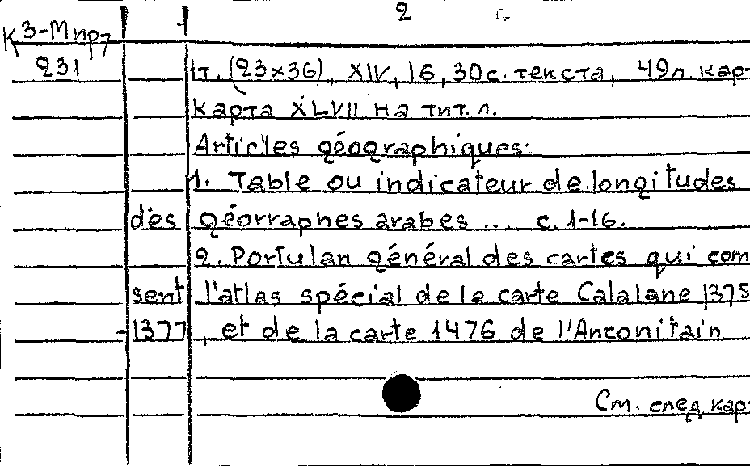 2
К3-Мирт
231 1т. (23x36), XIV, 16, 30 с. текста, 49 л. карт
карта XLVII на тит. л.
Articles géographiques:
1. Table ou indicateur de longitudes
des géorraphes arabes ... c. 1-16.
2. Portulan général des cartes qui com
sent l'atlas spécial de la carte Calalane 1375
-1377, et de la carte 1476 de l'Anconitain
См. след кар